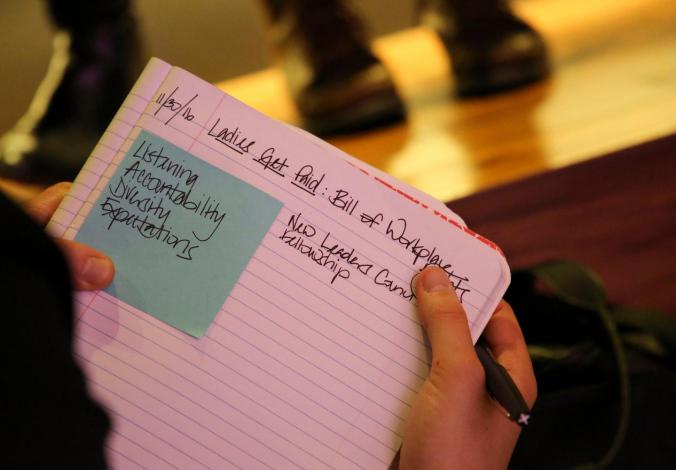 11/30/16
Ladies Get Paid: Bill of Workplace
Listening
Accountability
Diversity
Expectations
New Leaders
Fellowship